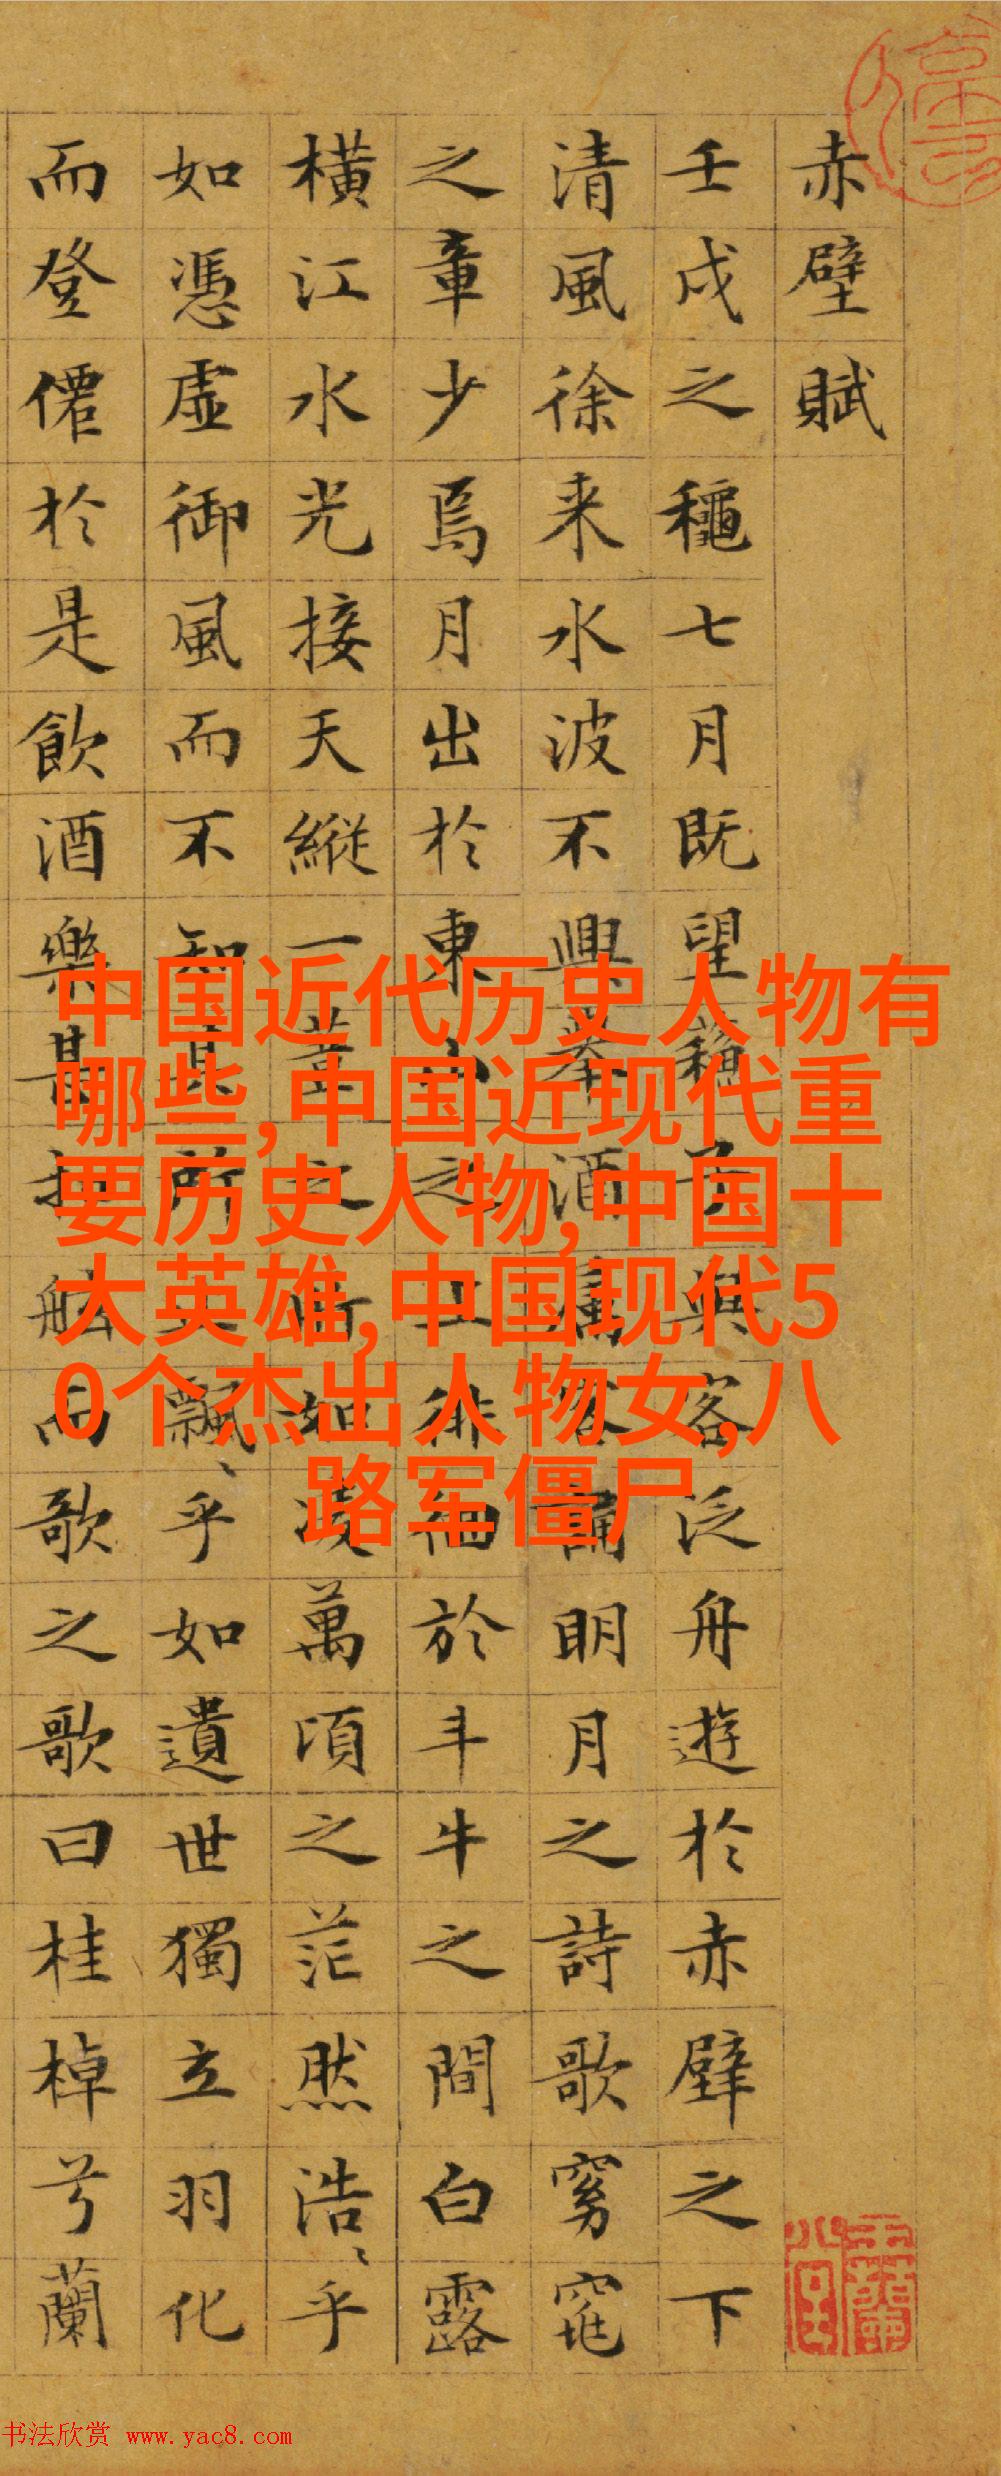 赤壁賦
壬戌之龝七月既望蘓子與客泛舟遊於赤壁之下
清風徐来水波不興舉酒屬客誦明月之詩歌窈窕
之章少焉月出於東山之上徘徊於斗牛之間白露
橫江水光接天縱一葦之所如凌萬頃之茫然浩〻乎
如憑虛御風而不知其所止飄〻乎如遺世獨立羽化
而登僊於是飲酒樂甚扣舷而歌之歌曰桂棹兮蘭
中国近代历史人物有
哪些,中国近现代重
要历史人物,中国十
大英雄,中国现代5
0个杰出人物女,八
路军僵尸
书法欣赏 www.yac8.com